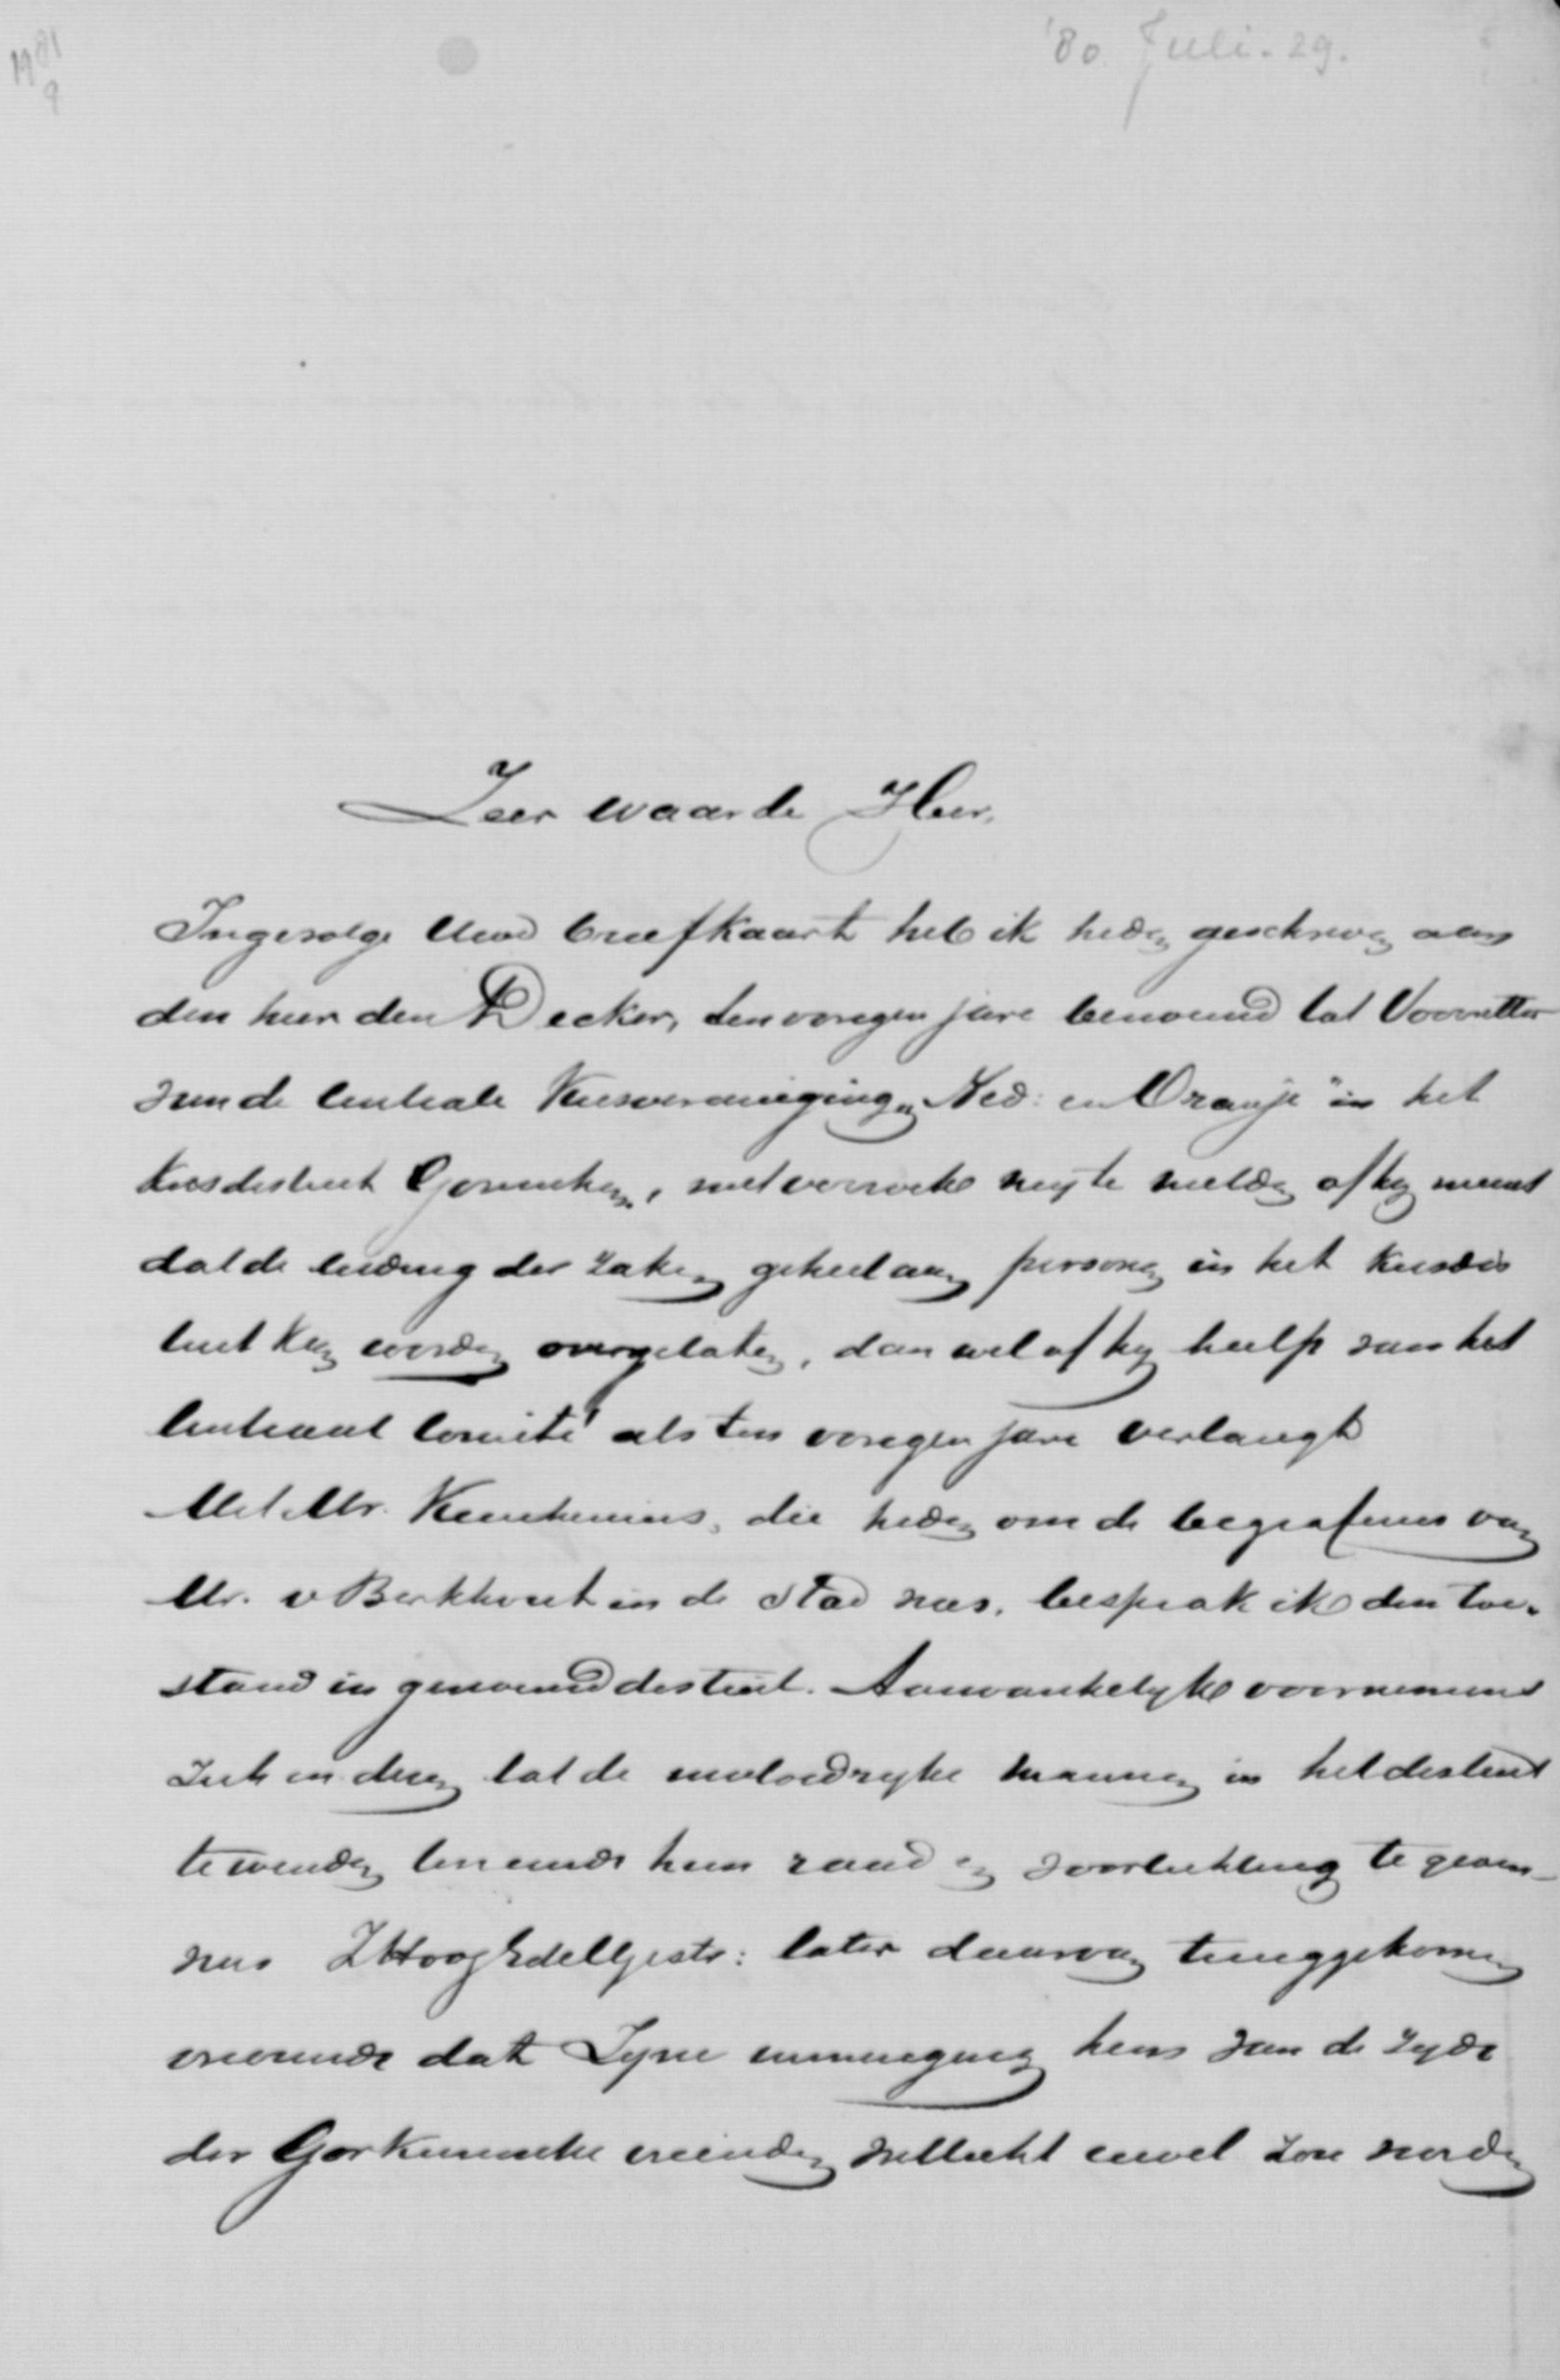 '80 Juli. 29.
1981
9
Zeer waarde Heer,
Ingevolge Uwe briefkaart heb ik heden geschreven aan
den heer den Decker, ten vorigen jare benoemd tot Voorzitter
van de Centrale Kiesvereeniging „Ned: en Oranje" in het
Kiesdistrict Gorinchem, met verzoek mij te melden of hij meent
dat de leiding der zaken geheel aan personen in het Kiesdis
trict kan worden overgelaten, dan wel of hij hulp van het
Centraal Comité als ten vorigen jare verlangt
Met Mr. Keuchenius, die heden om de begrafenis van
Mr. v Berkhout in de stad was, besprak ik den toe-
stand in genoemd district. Aanvankelijk voornemens
zich en dezen tot de invloedrijke mannen in het district
te wenden ten einde hen raad en voorlichting te geven
was ZHoogEdelGestr: later daarvan teruggekomen
vreezende dat Zijne inmenging hem van de zijde
der Gorkumsche vrienden wellicht euvel zou worden